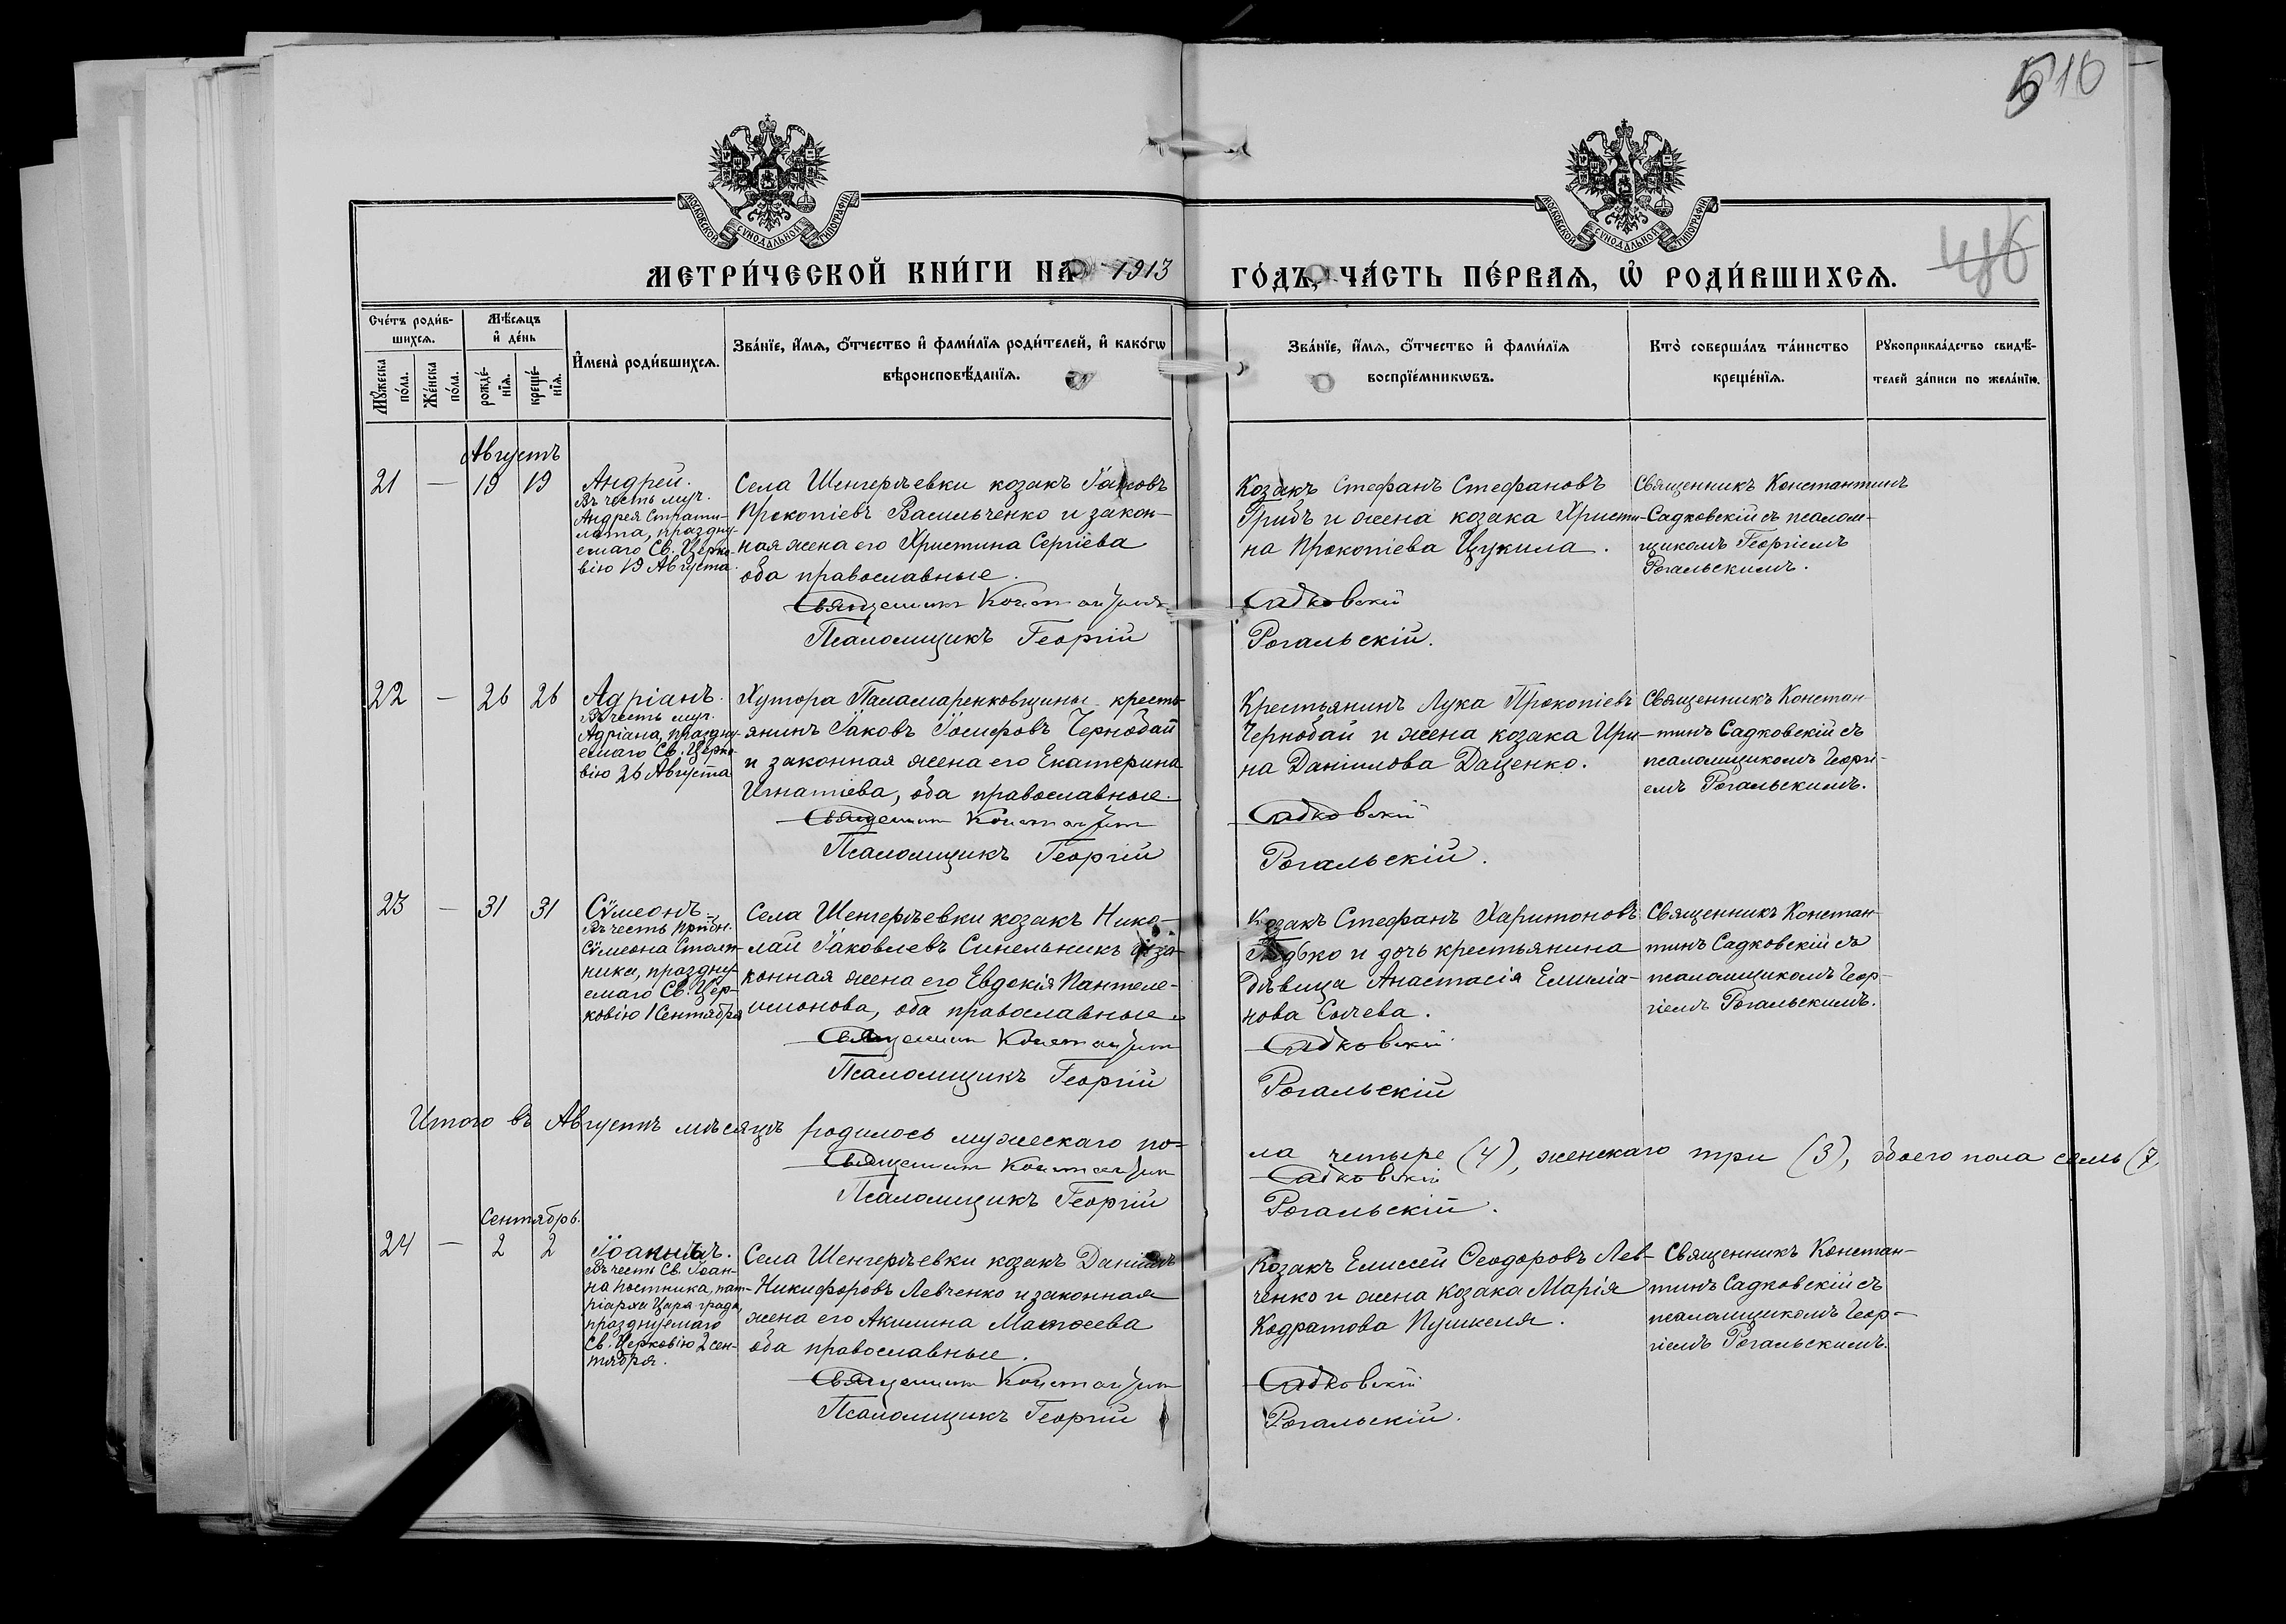 510
416
МОСКОВСКОЙ СУНОДАЛЬНОЙ ТИПОГРАФІИ
МОСКОВСКОЙ СУНОДАЛЬНОЙ ТИПОГРАФІИ
МЕТРИ́ЧЕСКОЙ КНИ́ГИ НА 1913
ГО́ДЪ, ЧА́СТЬ ПЕ́РВАѦ, Ѡ҆ РОДИ́ВШИХСѦ.
Сче́тъ роди́в-
шихсѧ.
Мꙋ́жеска по́ла.
Же́нска по́ла.
Мѣ́сѧцъ
и҆ де́нь
рожде́-
нїѧ.
креще́-
нїѧ.
И҆мена̀ роди́вшихсѧ.
Зва́нїе, и҆́мѧ, ѻ҆́тчество и҆ фами́лїѧ роди́телей, и҆ како́гѡ
вѣроисповѣ́данїѧ.
Зва́нїе, и҆́мѧ, ѻ҆́тчество и҆ фами́лїѧ
воспрїе́мникѡвъ.
Кто̀ соверша́лъ та́инство
креще́нїѧ.
Рꙋкоприкла́дство свидѣ́-
телей за́писи по жела́нїю.
Августъ
21 — 19 19
Андрей.
Въ честь муч.
Андрея Страти-
лата, праздну-
емаго Св. Церко-
вію 19 Августа.
Села Шенгерѣевки козакъ Іаковъ
Прокопіевъ Васильченко и закон-
ная жена его Христина Сергіева
оба православные.
Священникъ Константинъ
Псаломщикъ Георгій
Козакъ Стефанъ Стефановъ
Грибъ и жена козака Христи-
на Прокопіева Цукила.
Садковскій
Рогальскій.
Священникъ Константинъ
Садковскій съ псалом-
щикомъ Георгіемъ
Рогальскимъ.
22 — 26 26
Адріанъ.
Въ честь муч.
Адріана, праздну-
емаго Св. Церко-
вію 26 Августа
Хутора Паламаренковщины кресть-
янинъ Іаковъ Іосифовъ Чернобай
и законная жена его Екатерина
Игнатіева, оба православные.
Священникъ Константинъ
Псаломщикъ Георгій
Крестьянинъ Лука Прокопіевъ
Чернобай и жена козака Ири-
на Даніилова Даценко.
Садковскій
Рогальскій.
Священникъ Констан-
тинъ Садковскій съ
псаломщикомъ Георгі-
емъ Рогальскимъ.
23 — 31 31
Сѵмеонъ.
Въ честь прпдн.
Сѵмеона Столп-
ника, праздну-
емаго Св. Цер-
ковію 1 Сентября
Села Шенгерѣевки козакъ Нико-
лай Іаковлевъ Синельникъ и за-
конная жена его Евдокія Пантеле-
имонова, оба православные.
Священникъ Константинъ
Псаломщикъ Георгій
Козакъ Стефанъ Харитоновъ
и дочь крестьянина
дѣвица Анастасія Емиліа-
нова Сычева.
Садковскій
Рогальскій
Священникъ Констан-
тинъ Садковскій съ
псаломщикомъ Геор-
гіемъ Рогальскимъ.
Итого въ Августѣ мѣсяцѣ родилось мужескаго по-
ла четыре (4), женскаго три (3), обоего пола семь (7
Священникъ Константинъ
Садковскій
Псаломщикъ Георгій
Рогальскій.
Сентябрь.
24 — 2 2
Іоаннъ.
Въ честь Св. Іоан-
на постника, пат-
ріарха Царя града,
празднуемаго
Св. Церковію 2 сен-
тября.
Села Шенгерѣевки козакъ Даніилъ
Никифоровъ Левченко и законная
жена его Акилина Матѳеева
оба православные.
Священникъ Константинъ
Псаломщикъ Георгій
Козакъ Елиссей Ѳеодоровъ Лев-
ченко и жена козака Марія
Кодратова Пушкеля.
Садковскій
Рогальскій.
Священникъ Констан-
тинъ Садковскій съ
псаломщикомъ Геор-
гіемъ Рогальскимъ.